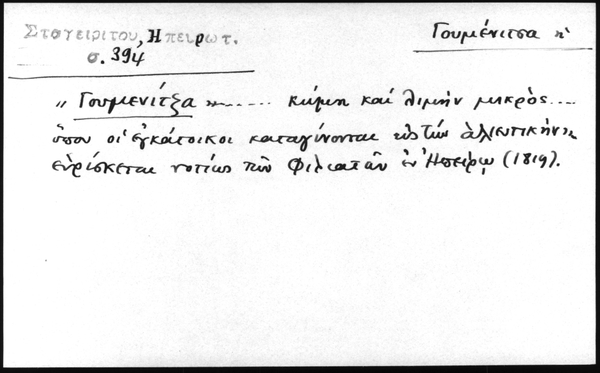 Σταγειρίτου, Ηπειρωτ.
σ. 394
Γουμένιτσα ἡ
„ Γουμενίτζα „...... κώμη καὶ λιμὴν μικρὸς....
ὅπου οἱ ἐγκάτοικοι καταγίνονται εἰς τὴν ἁλιευτικήν „
εὑρίσκεται νοτίως τῶν Φιλιατῶν ἐν Ἠπείρῳ (1819).